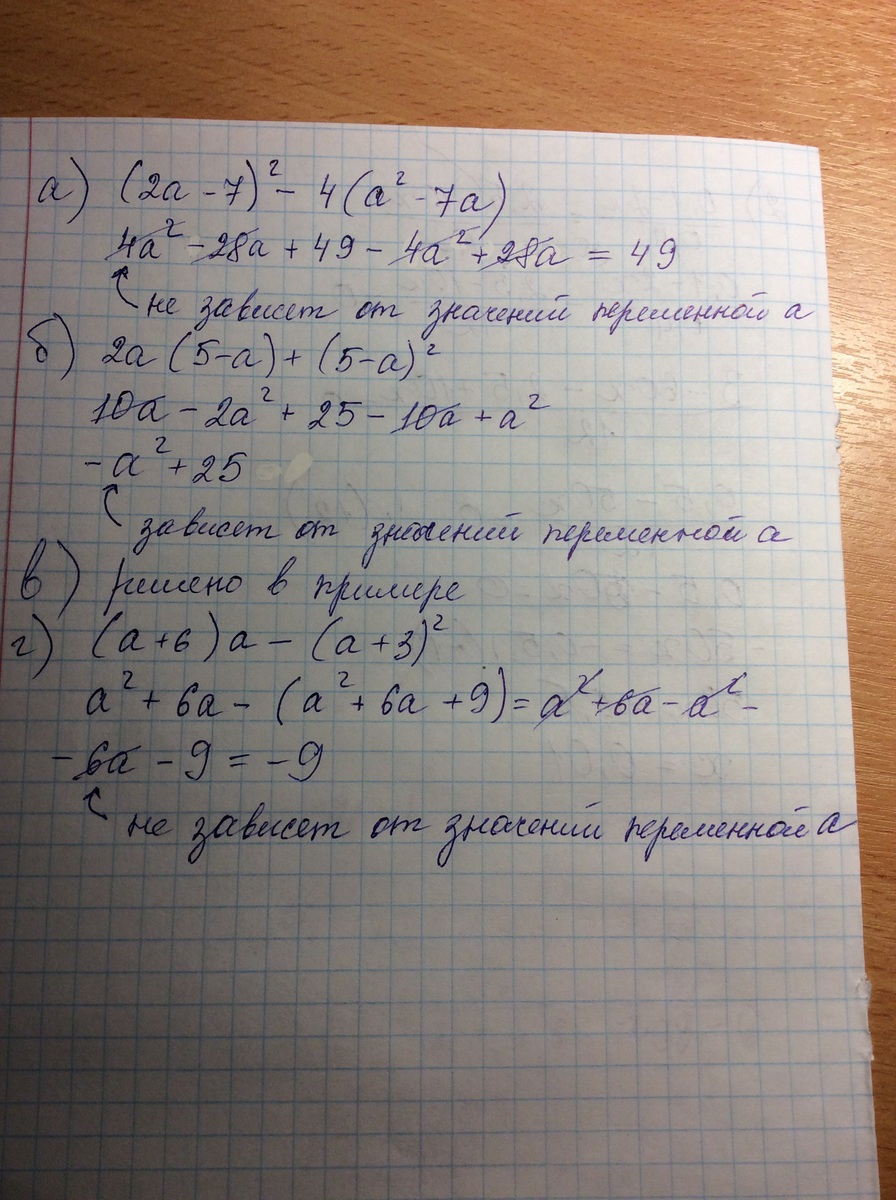 а) (2а - 7)² - 4(а² - 7а)
4а² - 28а + 49 - 4а² + 28а = 49
не зависет от значений переменной а
б) 2а (5-а) + (5-а)²
10а - 2а² + 25 - 10а + а²
-а² + 25
зависет от значений переменной а
в) решено в примере
г) (а+6)а - (а+3)²
а² + 6а - (а² + 6а + 9) = а² + 6а - а² -
- 6а - 9 = -9
не зависет от значений переменной а